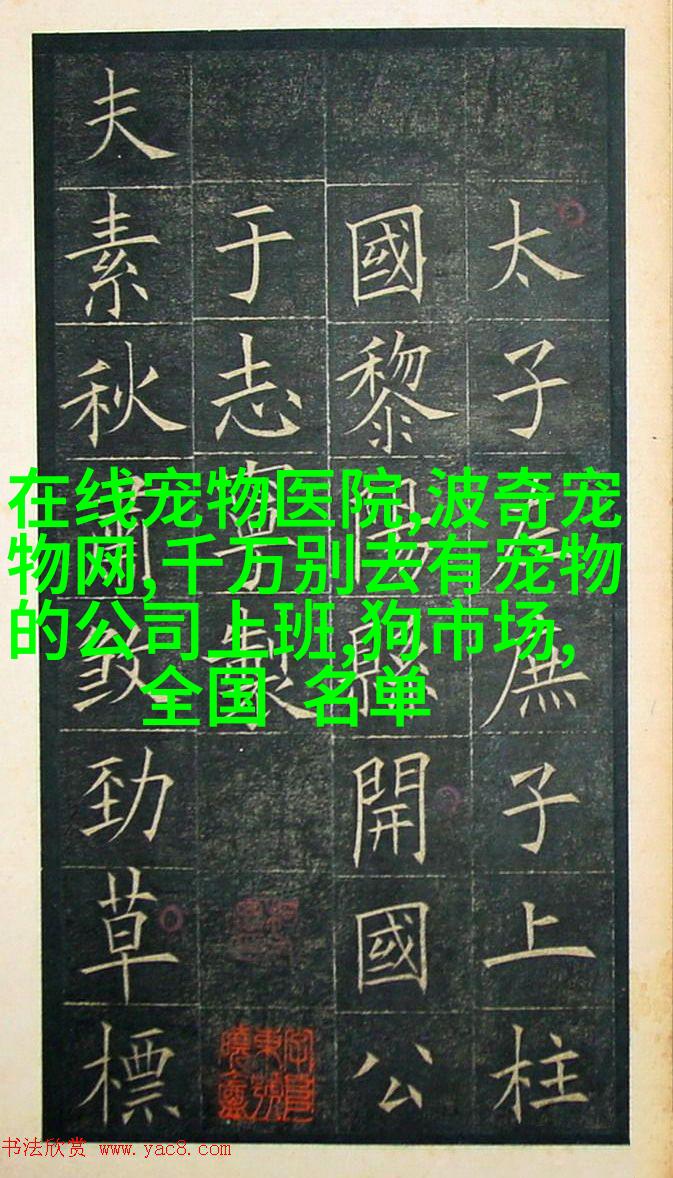 太子左庶子上柱
國黎陽縣開國公
于志寧製
夫素秋肅煞勁草標
在线宠物医院,波奇宠
物网,千万别去有宠物
的公司上班,狗市场,
全国 名单
书法欣赏 www.yac8.com